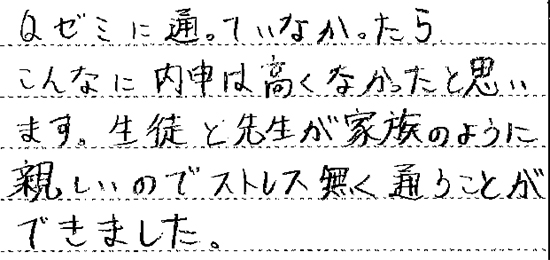 Qゼミに通っていなかったら
こんなに内申は高くなかったと思い
ます。生徒と先生が家族のように
親しいのでストレス無く通うことが
できました。